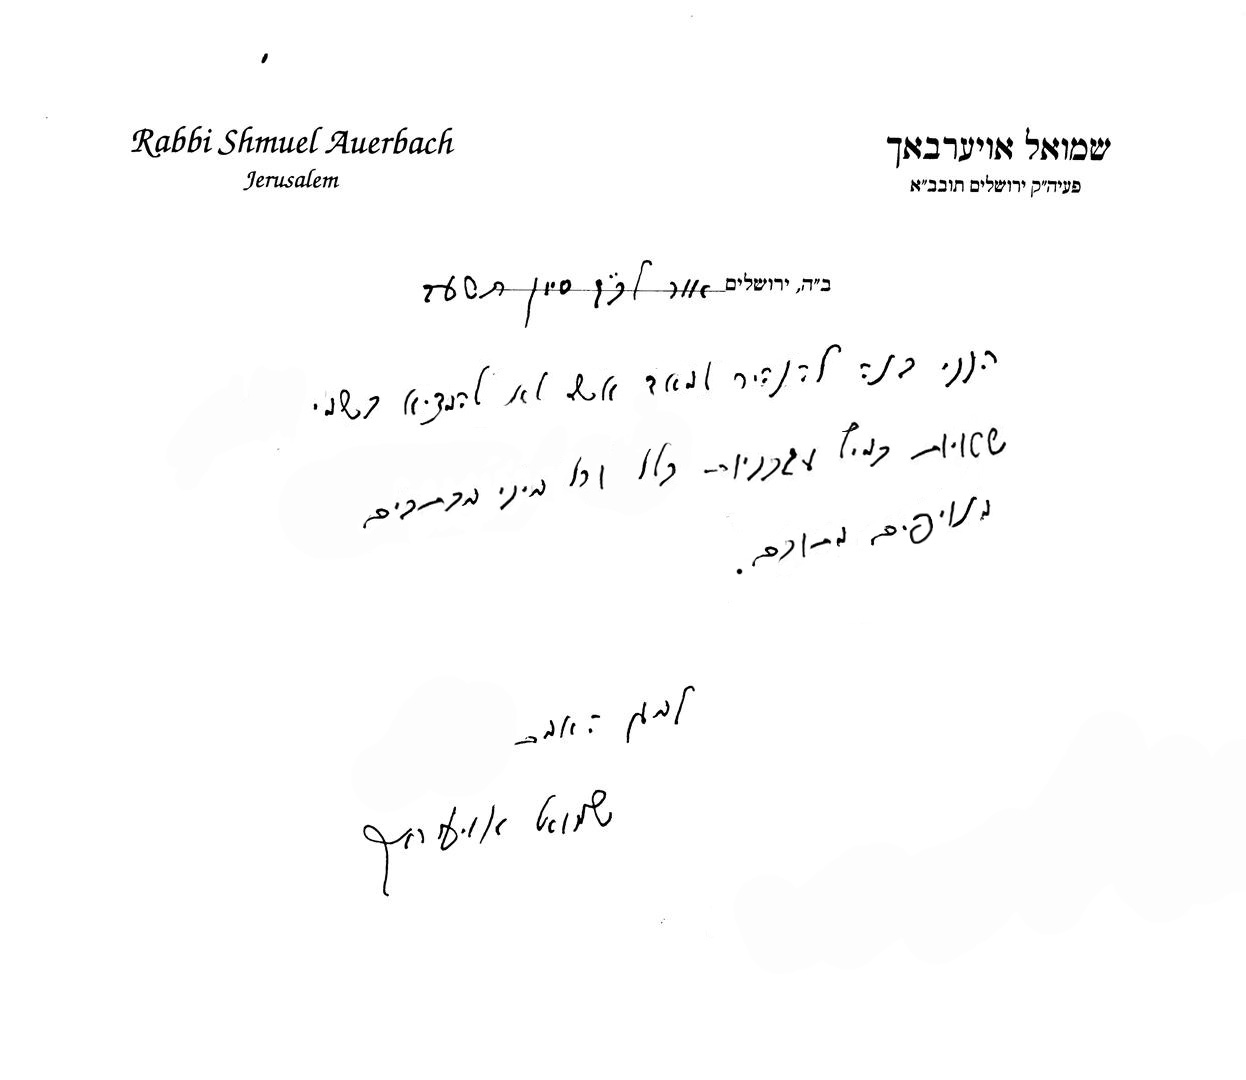 Rabbi Shmuel Auerbach
Jerusalem
שמואל אויערבאך
פעיה״ק ירושלים תובב״א
ב״ה, ירושלים אור לכ״ף סיון תשעד
הנני בזה להזהיר מאד אשר לא להמציא בשמי
שאויות כמילי עגבניות כלל וכל מיני מכתבים
מזויפים מתוכם.
למען האמת
שמואל אויערבאך